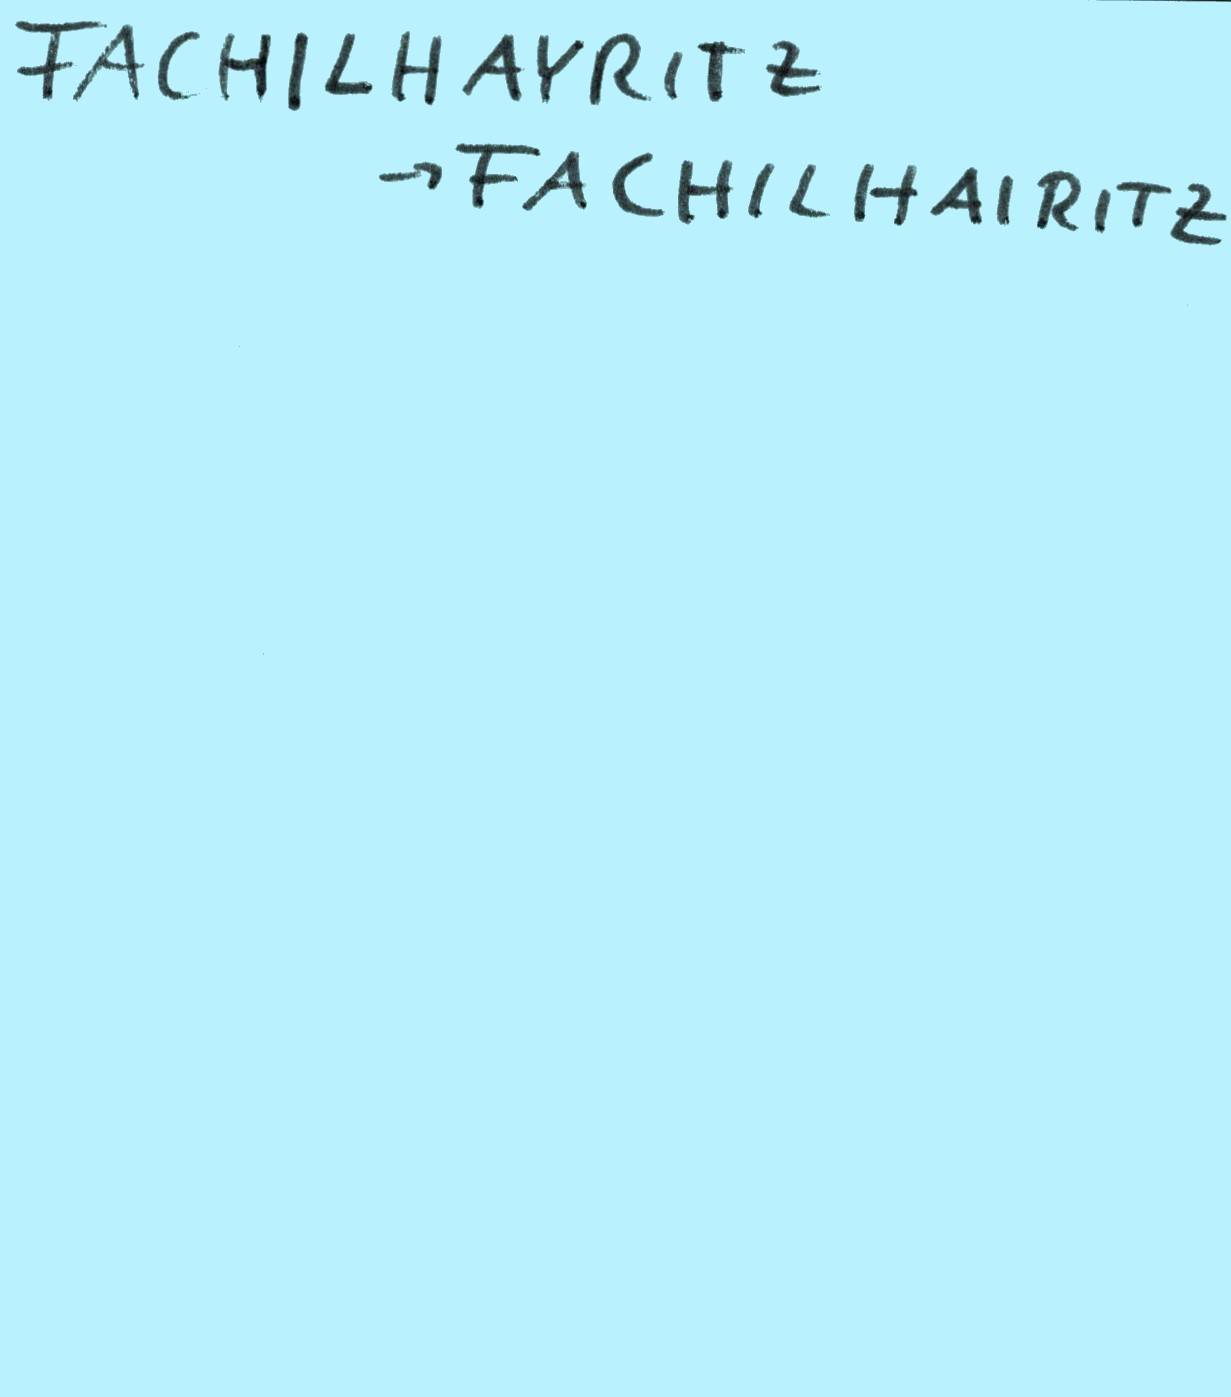 FACHILHAYRITZ
→FACHILHAIRITZ